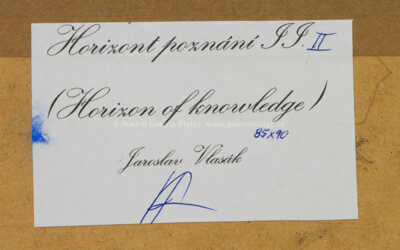 Horizont poznání II. II
(Horizon of knowledge)
85x90
Jaroslav Vlasák